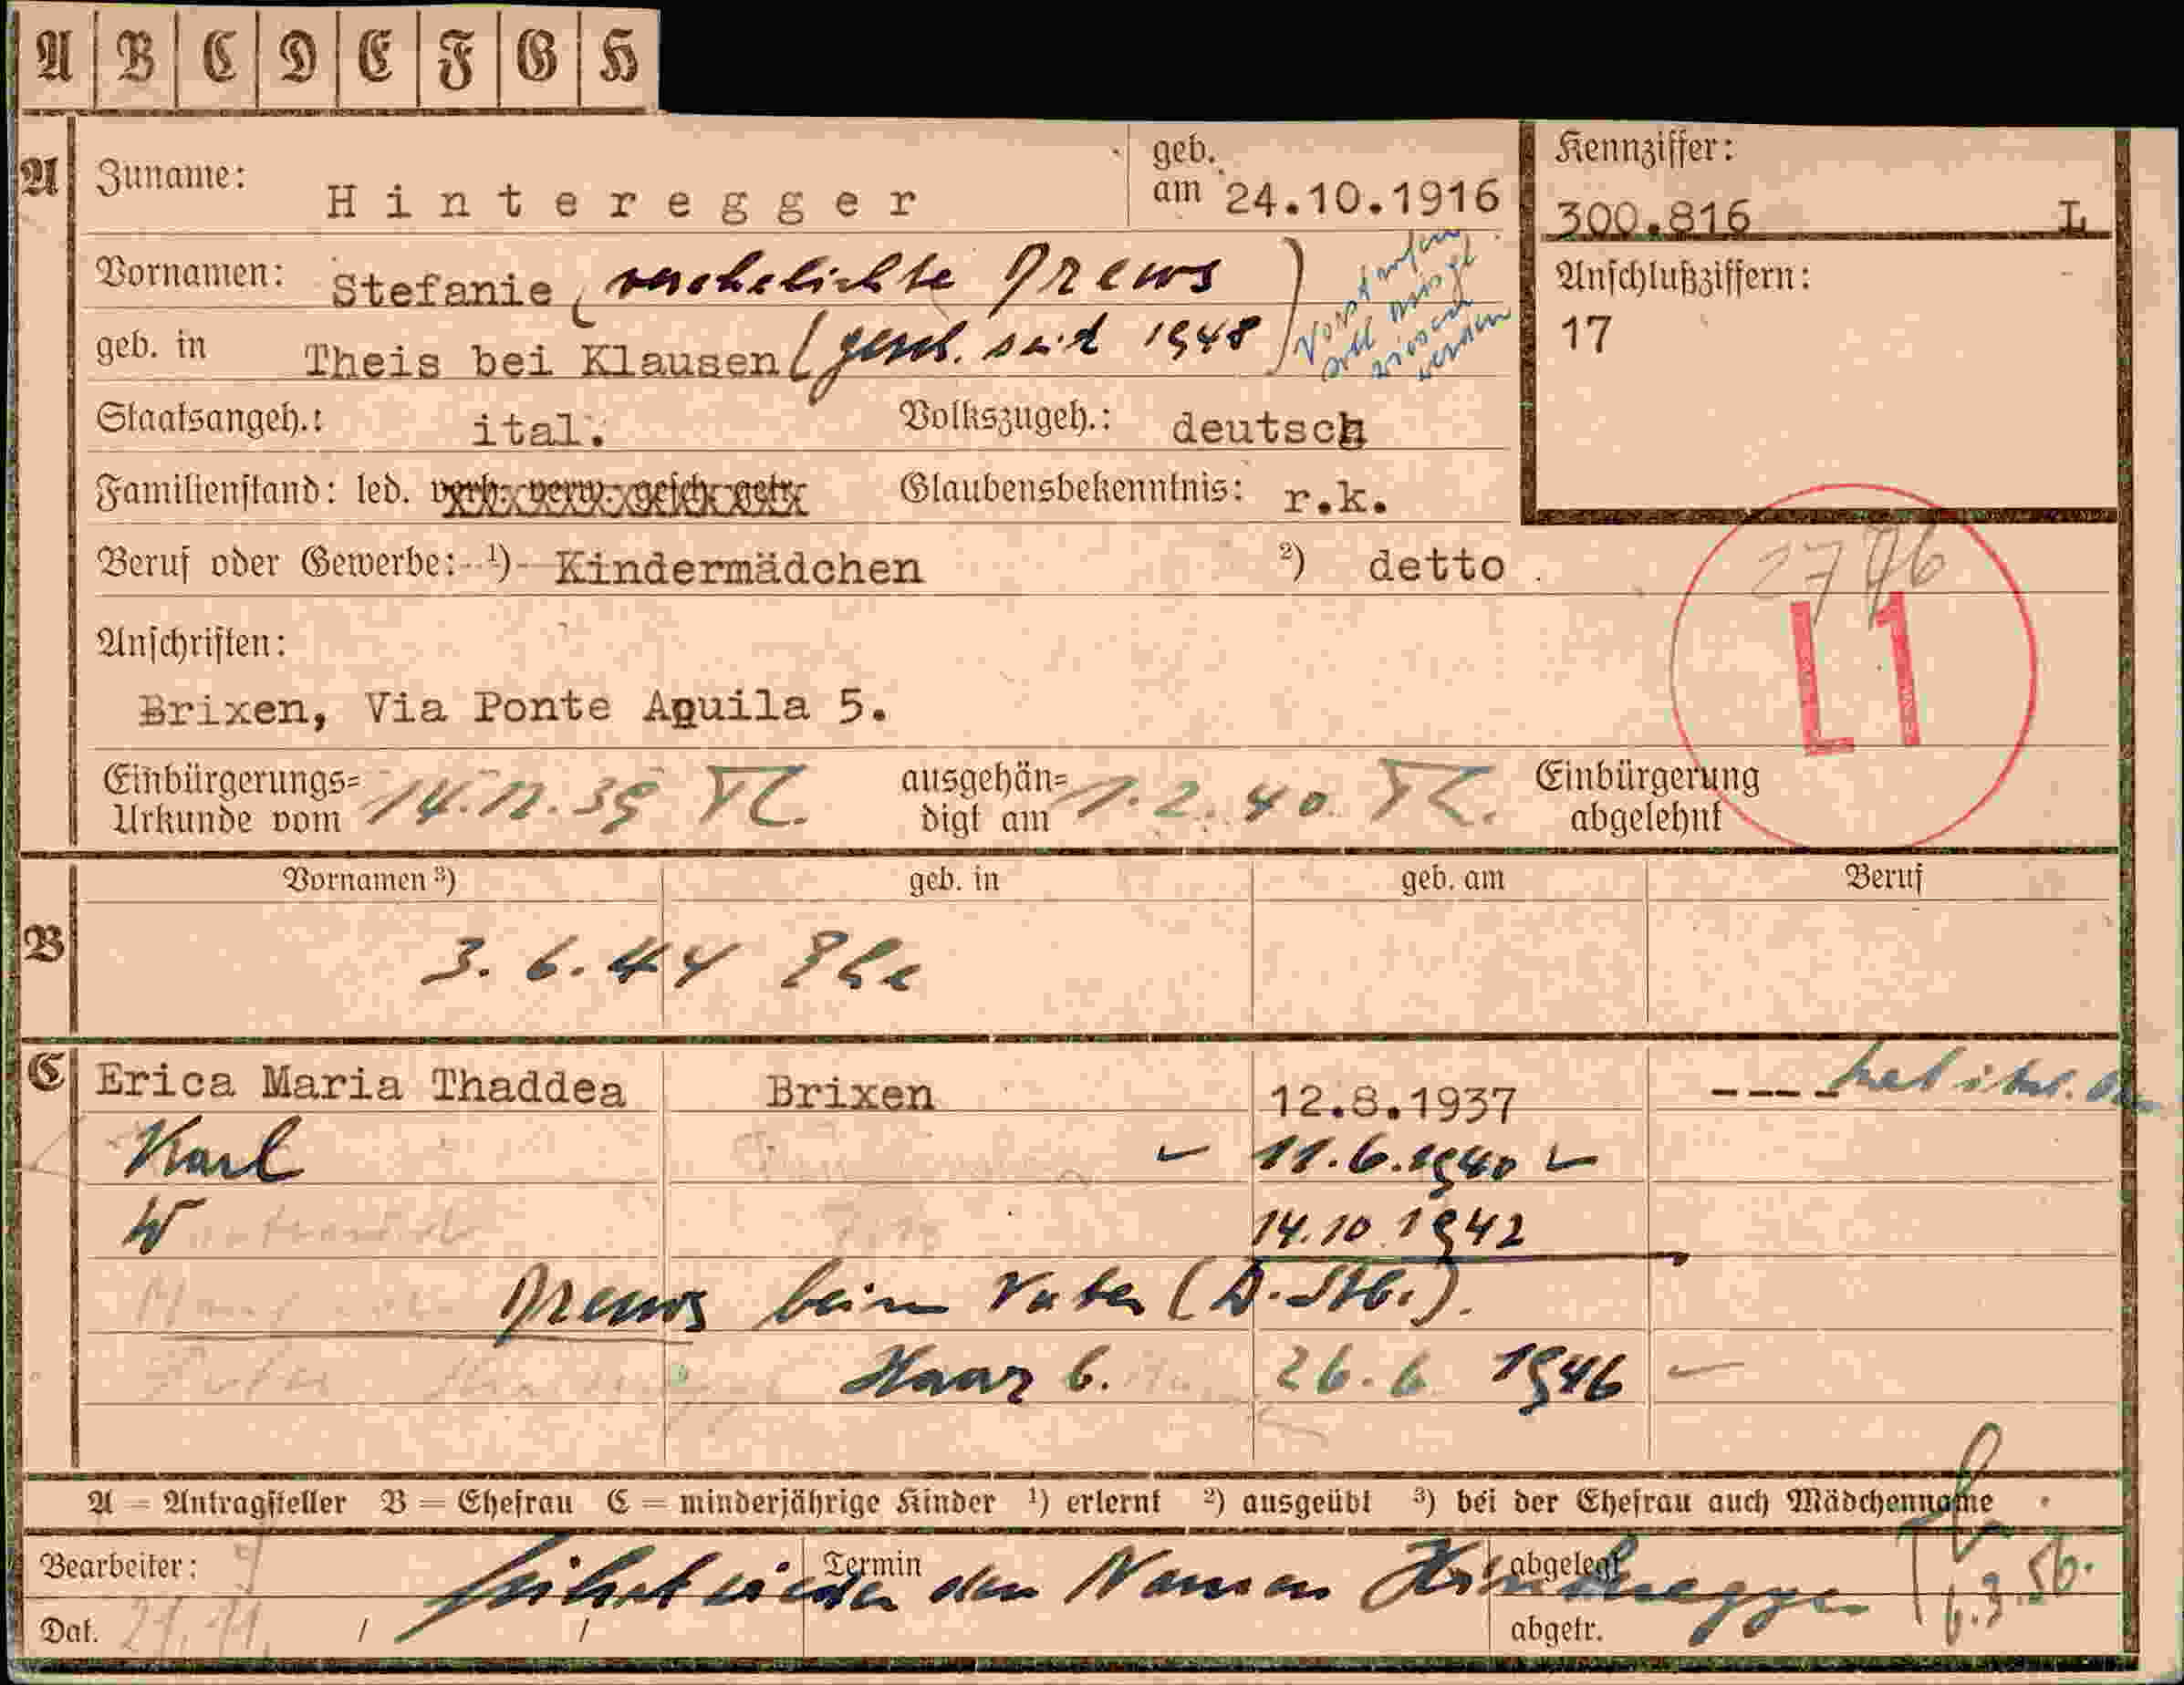 A B C D E F G H
A
Zuname: Hinteregger
geb. am 24.10.1916
Kennziffer:
300.816 L
Vornamen: Stefanie (verehelichte Drews)
Anschlußziffern:
17
geb. in Theis bei Klausen (gesch. seit 1948)
Staatsangeh.: ital. Volkszugeh.: deutsch
Familienstand: led. verh. verw. gesch. getr. Glaubensbekenntnis: r.k.
Beruf oder Gewerbe: ¹) Kindermädchen ²) detto
L1
Anschriften:
Brixen, Via Ponte Aquila 5.
Einbürgerungs=Urkunde vom 14.12.39 ausgehän=digt am 1.2.40. Einbürgerung abgelehnt
Vornamen ³) geb. in geb. am Beruf
B
3.6.44 Ehe
C
Erica Maria Thaddea Brixen 12.8.1937 ---- hat ital.
Karl 11.6.1940
W 14.10.1942
Drews beim Vater (D.Stb.).
Haar b. 26.6 1946
A = Antragsteller B = Ehefrau C = minderjährige Kinder ¹) erlernt ²) ausgeübt ³) bei der Ehefrau auch Mädchenname
Bearbeiter: Termin abgelegt
führt wieder den Namen Hinteregger 6.3.56.
Dat. 21.11. / / abgetr.